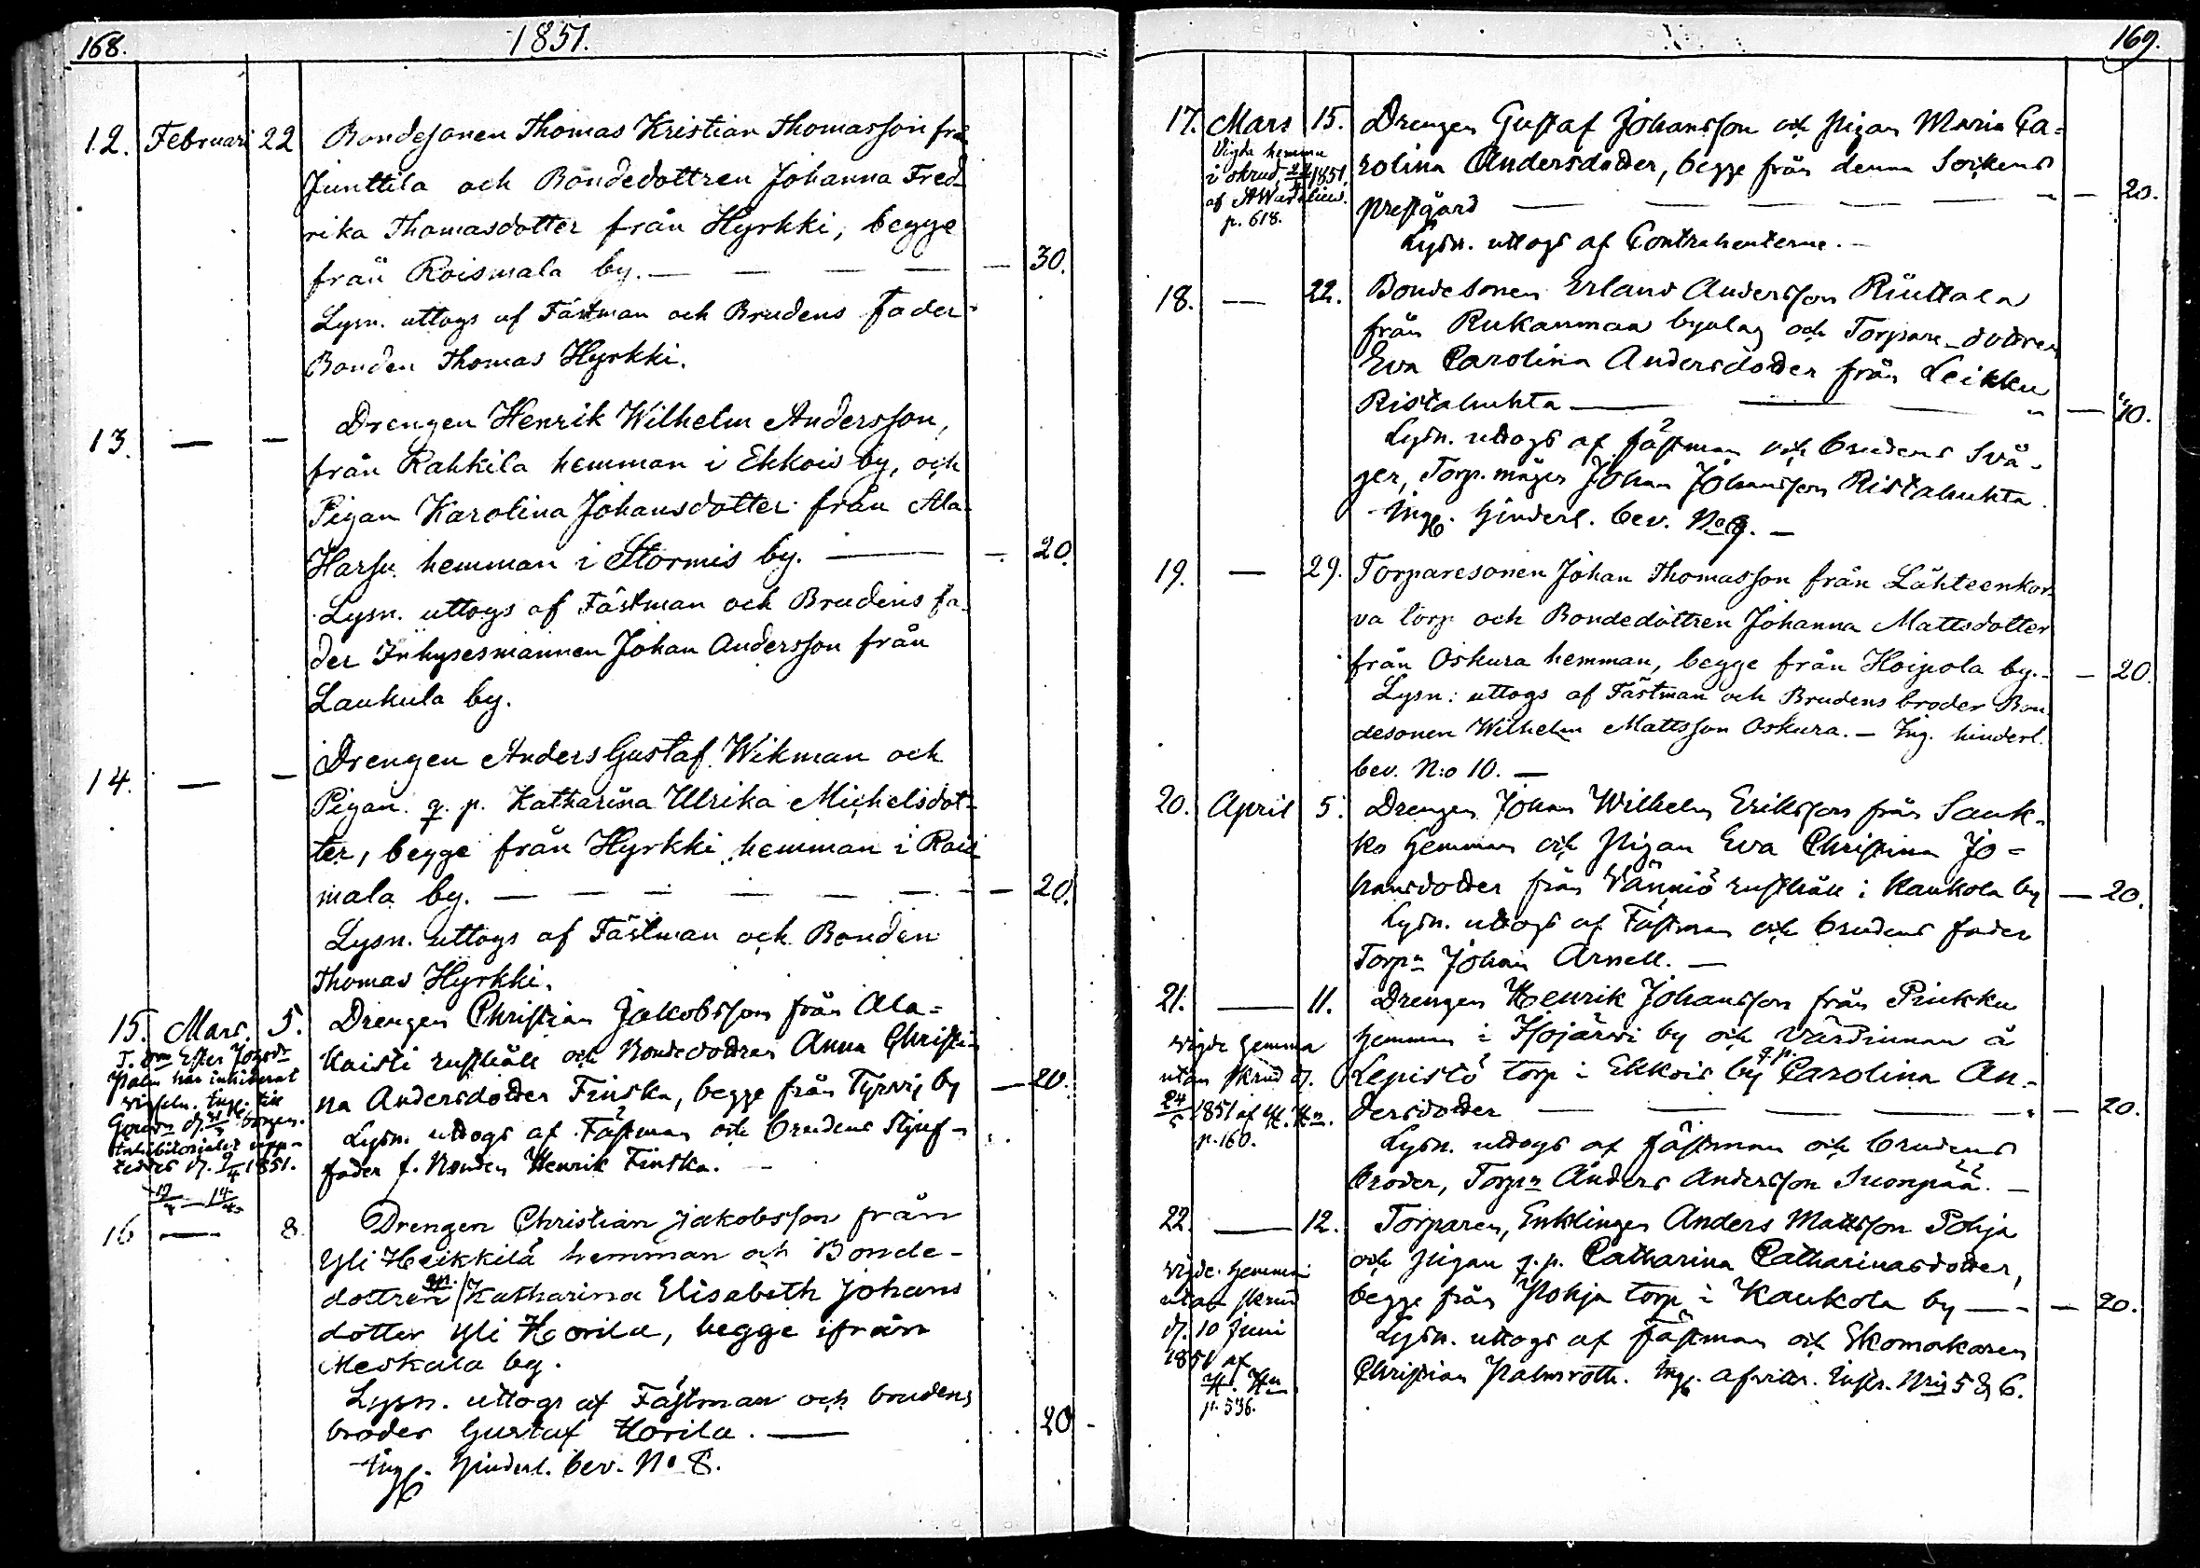 168.
1851.
12. Februari 22 Bondesonen Thomas Kristian Thomasson frå
Junttila och Bondedottren Johanna Fred-
rika Thomasdotter från Hyrkki, begge
från Roismala by. — — — — — 30.
Lysn. uttogs af Fästman och Brudens fader
Bonden Thomas Hyrkki.
13. — — Drengen Henrik Wilhelm Andersson,
från Rahkila hemman i Ekkois by, och
Pigan Karolina Johansdotter från Ala-
Harju hemman i Stormis by. — — 20.
Lysn. uttogs af Fästman och Brudens fa-
der Inhysesmannen Johan Andersson från
Laukula by.
14. — — Drengen Anders Gustaf Wikman och
Pigan q. p. Katharina Ulrika Michelsdot-
ter, begge från Hyrkki hemman i Rois-
mala by. — — — — — — — 20.
Lysn. uttogs af Fästman och Bonden
Thomas Hyrkki.
15. Mars. 5. Drengen Christian Jakobsson från Ala-
Kaisti rusthåll och Bondedottren Anna Christi-
na Andersdotter Finska, begge från Tyrvis by — 20.
Lysn. uttogs af Fästman och brudens Stjuf-
fader f. Bonden Henrik Finska. —
Palm har inhiberat
1851.
16 — 8. Drengen Christian Jakobsson från
Yli Heikkilä hemman och Bonde-
dottren qp. Katharina Elisabeth Johans
dotter Yli Horila, begge ifrån
Meskala by.
Lysn. uttogs af Fästman och brudens
broder Gustaf Horila. — 20 -
Ing. hinderl. bev. No 8.
169.
17. Mars 15. Drengen Gustaf Johansson och Pigan Maria Ca-
rolina Andersdotter, begge från denna Sockens
Prestgård — — — — — — — 20.
Lysn. uttogs af Contrahenterne. —
Vigda hemma
i skrud 1851.
p. 618.
18. — 22. Bondesonen Erland Andersson Riuttala
från Rukanmaa byalag och Torpare-dottren
Eva Carolina Andersdotter från Leikku
Ristahuhta — — — — 10.
Lysn. uttogs af fästman och brudens Svå-
ger, Torp. mågen Johan Johansson Ristahuhta.
Ing. hinderl. bev. No 9. —
19. — 29. Torparesonen Johan Thomasson från Lähteenkor-
va torp och Bondedottren Johanna Mattsdotter
från Oskura hemman, begge från Hoipola by. — 20.
Lysn: uttogs af Fästman och Brudens broder Bon
desonen Wilhelm Mattsson Oskura. — Ing. hinderl.
bev. N:o 10. —
20. April 5. Drengen Johan Wilhelm Eriksson från Sauk-
ko hemman och Pigan Eva Christina Jo-
hansdotter från Vänniö rusthåll i Kaukola by — 20.
Lysn. uttogs af Fästman och brudens fader
Torpn Johan Arnell. —
21. — 11. Drengen Henrik Johansson från Piukku
hemman i Hojärvi by och Värdinnan å
Lepistö torp i Ekkois by q. p. Carolina An-
dersdotter — — — — — — 20.
Lysn. uttogs af fästman och brudens
broder, Torpn Anders Andersson Suonpää. —
Vigde hemma
utan skrud d.
24/5 1851 af H. Hn.
p. 160.
22. — 12. Torparen, Enklingen Anders Mattsson Pohja
och pigan q. p. Catharina Catharinasdotter,
begge från Pohja torp i Kaukola by — — 20.
Lysn. uttogs af fästman och Skomakaren
Christian Palmroth. Ing. afvittr. Inst. Nris 5 & 6.
Vigde hemma
utan skrud
d. 10 Juni
1851 af
H. Hn
p. 536.